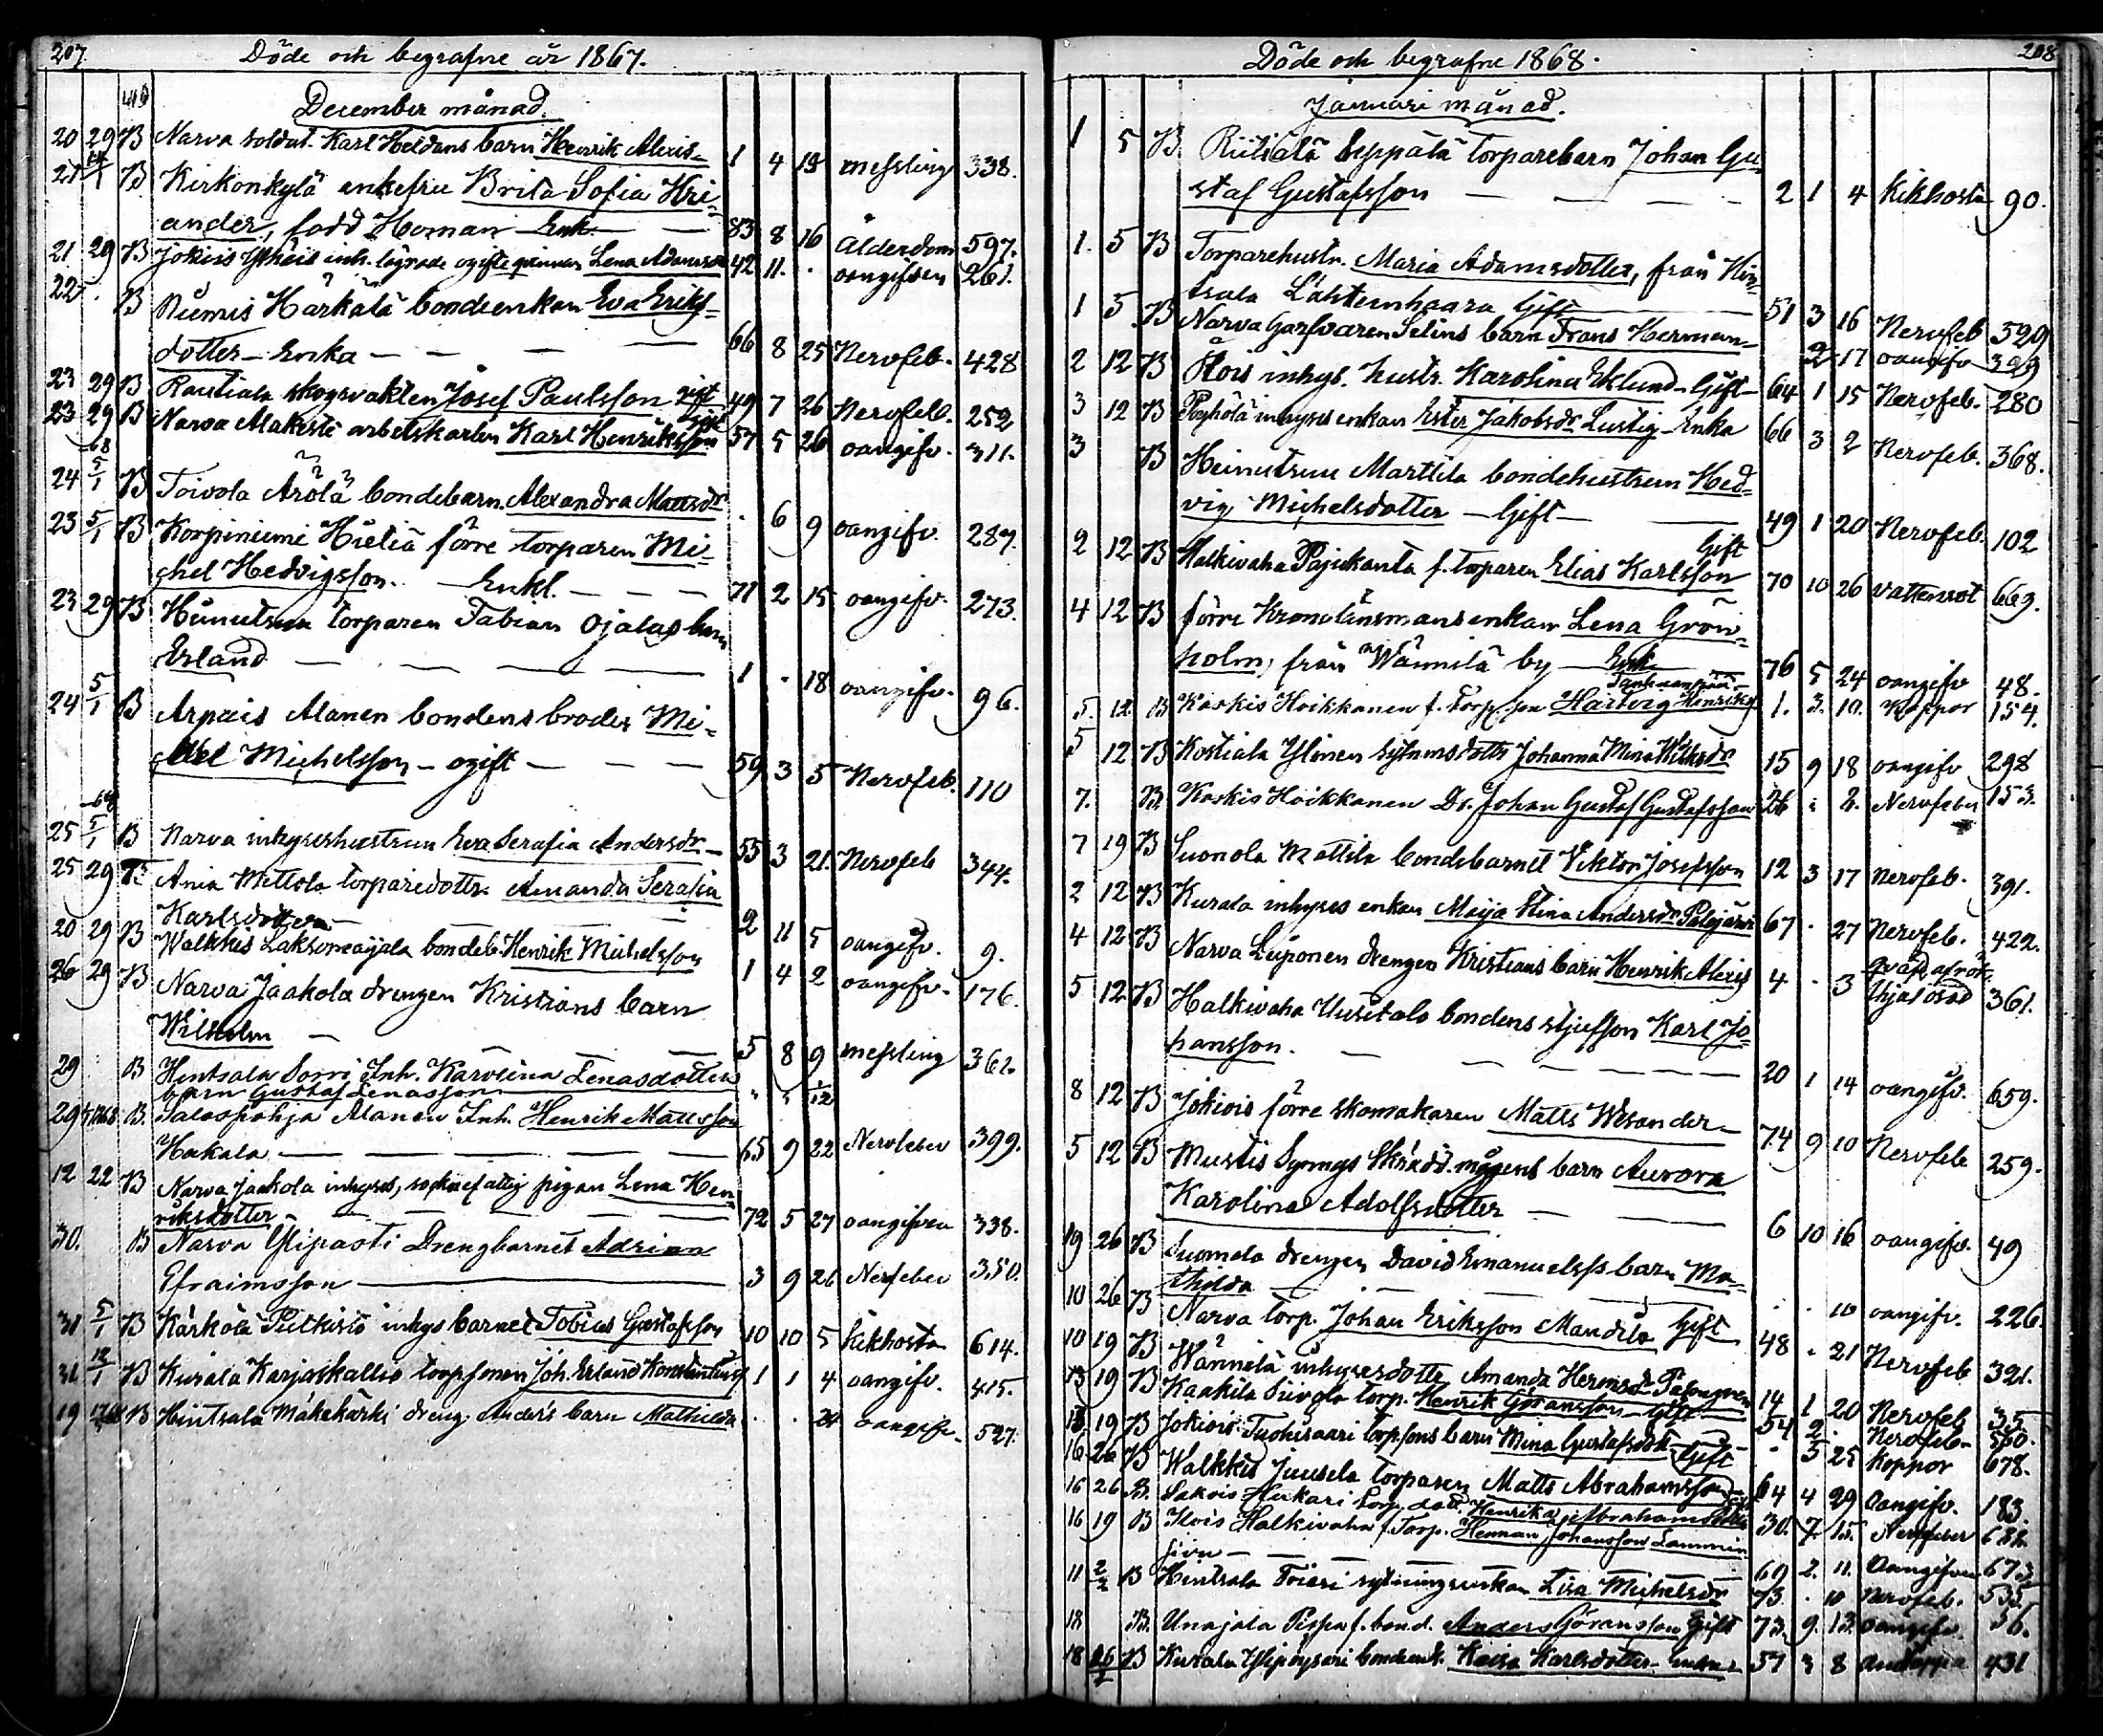 207.
Döde och begrafne år 1867.
December månad.
20 29 B Narva soldat. Karl Heldans barn Henrik Alexis 1 4 19 messling 338.
21 B Kirkonkylä enkefru Brita Sofia Kri-
ander, född Homan Enk 83 8 16 Ålderdom 597.
21 29 B Jokiois Yhäis inh. ogifte qvinnan Lena Adamsdr 42 11 . oangifven 261.
22 . B Niemis Härkälä bondeenkan Eva Eriks-
dotter - Enka 66 8 25 Nervfeb. 428
23 29 B Rautiala skogsvakten Josef Paulsson gift 49 7 26 Nervfeb. 252
23 29 B Narva Makisti arbetskarlen Karl Henriksson gift 57 5 26 oangifv. 311.
-68
24 5/1 B Toivola Arölä bondebarn Alexandra Mattsdr . 6 9 oangifv. 287.
23 5/1 B Korpiniemi Hietia förre torparen Mi-
chel Hedvigsson. Enkl. 71 2 15 oangifv. 273.
23 29 B Heinutrun torparen Fabian Ojalas barn
Erland 1 . 18 oangifv. 96.
24 5/1 B Arpais Alanen bondens broder Mi-
chel Michelsson - ogift 59 3 5 Nervfeb. 110
-68
25 5/1 B Narva inhyseshustrun Eva Serafia Andersdr 55 3 21 Nervfeb 344.
25 29 Ania Mettola torparedottr. Amanda Serafia
Karlsdotter 2 11 5 oangifv. 9.
20 29 B Walkkis Laksomaijala bondeb. Henrik Michelsson 1 4 2 oangifv. 176.
26 29 B Narva Jaakola drengen Kristians barn
Wilhelm 5 8 9 messling 361.
29 B Hintsala Sorri Inh. Karolina Lenasdotters
barn Gustaf Lenasson
29 B. Salospohja Alanen Inh. Henrik Mattsson
Hakala 65 9 22 Nervfeber 399.
12 22 B Narva Jaakola inhyses, sockenfattig pigan Lena Hen-
riksdotter 72 5 27 oangifven 338.
30. B Narva Ylipasti Drengbarnet Adrian
Efraimsson 3 9 26 Nerfeber 350.
31 5/1 B Kärkölä Pietkistö inhys barnet Tobias Gustafsson 10 10 5 Kikhosta 614.
31 12/1 B Kurala Karjaskallio torpsonen Joh. Erland Konstantins 1 1 4 oangifv. 415.
19 B Hintsala Mäkekärki dreng. Anders barn Mathilda . . 24 oangifv. 527.
208
Döde och begrafne 1868.
Januari månad.
1 5 B. Riitiälä Seppälä torparebarn Johan Gu-
staf Gustafsson 2 1 4 Kikhosta 90.
1. 5 B Torparehustr. Maria Adamsdotter, från Hin-
tsala Lähteenhaara Gift 51 3 16 Nervfeb 529
1 5 B Narva Garfvaren Selins barn Frans Herman 2 17 oangifv 309
2 12 B Ilois inhys. hustr. Karolina Eklund - Gift 64 1 15 Nervfeb. 280
3 12 B Pöyhölä inhyses enkan Ester Jakobsdr Lustig - Enka 66 3 2 Nervfeb. 368.
3 B Heinutrun Marttila bondehustrun Hed-
vig Michelsdotter - Gift 49 1 20 Nervfeb. 102
2 12 B Halkivaha Pajukanta f. torparen Elias Karlsson Gift 70 10 26 Vattensot 663.
4 12 B förre Kronolänsmansenkan Lena Grön-
holm, från Wännilä by Enk 76 5 24 oangifv 48.
5. 12 B Koskis Hoikkanen f. Torp. son Hartvig Henriks 1. 3. 10. Koppor 154.
5 12 B Kostiala Ylinen sytnmsdottr Johanna Mina Wilksdr 15 9 18 oangifv 298
7. B. Koskis Hoikkanen Dr. Johan Gustaf Gustafsson 26 2. Nervfeber 153.
7 19 B Suonola Mattila bondebarnet Viktor Josefsson 12 3 17 Nervfeb. 391.
2 12 B Kurala inhyses enkan Maija Stina Andersdr Palojärvi 67 . 27 Nervfeb. 422.
4 12 B Narva Luponen drengen Kristians barn Henrik Alexis 4 . 3 ihjälösad 361.
5 12 B Halkivaha Uusitalo bondens styfsson Karl Jo-
hansson. 20 1 14 oangifv. 659.
8 12 B Jokiois förre skomakaren Matts Wesander 74 9 10 Nervfeb 259.
5 12 B Mustis Sprengs Skrädd. mågens barn Aurora
Karolina Adolfsdotter 6 10 16 oangifv. 49
19 26 B Suomela drengen David Emanuelss. barn Ma-
thilda . . 10 oangifv. 226.
10 26 B Narva torp. Johan Eriksson Mandila Gift 48 . 21 Nervfeb 321.
10 19 B Wännelä inhysesdottr Amanda Hermsdr 14 1 20 Nervfeb 35
13 19 B Kaakila Suvola torp. Henrik Göransson - Gift 54 2 . Nervfeb. 560.
13 19 B Jokiois Tuohisaari torpsons barn Mina Gustafsdtr . 5 25 Koppor 678.
16 26 B Walkkis Juusela torparen Matts Abrahamsson Gift 64 4 29 Oangifv. 183.
16 26 B. Sakois Heikari Torp. dott. Henrika Abrahamsdotter 30. 7. 15. Nervfeber 688.
16 19 B Ilois Halkivaha f. Torp. Herman Johansson Lammin
sivu 69 2. 11. Oangifven 673.
11 2/2 B Hintsala Toiari sytningsenkan Lisa Michelsdr 73 . 10 Nervfeb. 535.
18 B. Unajala Pispa f. bond. Anders Göransson Gift 73. 9. 13. oangifv. 56.
18 26/2 B Kurala Ylipöysäri bondeenk. Kaisa Karlsdotter Enka 57 3 8 431